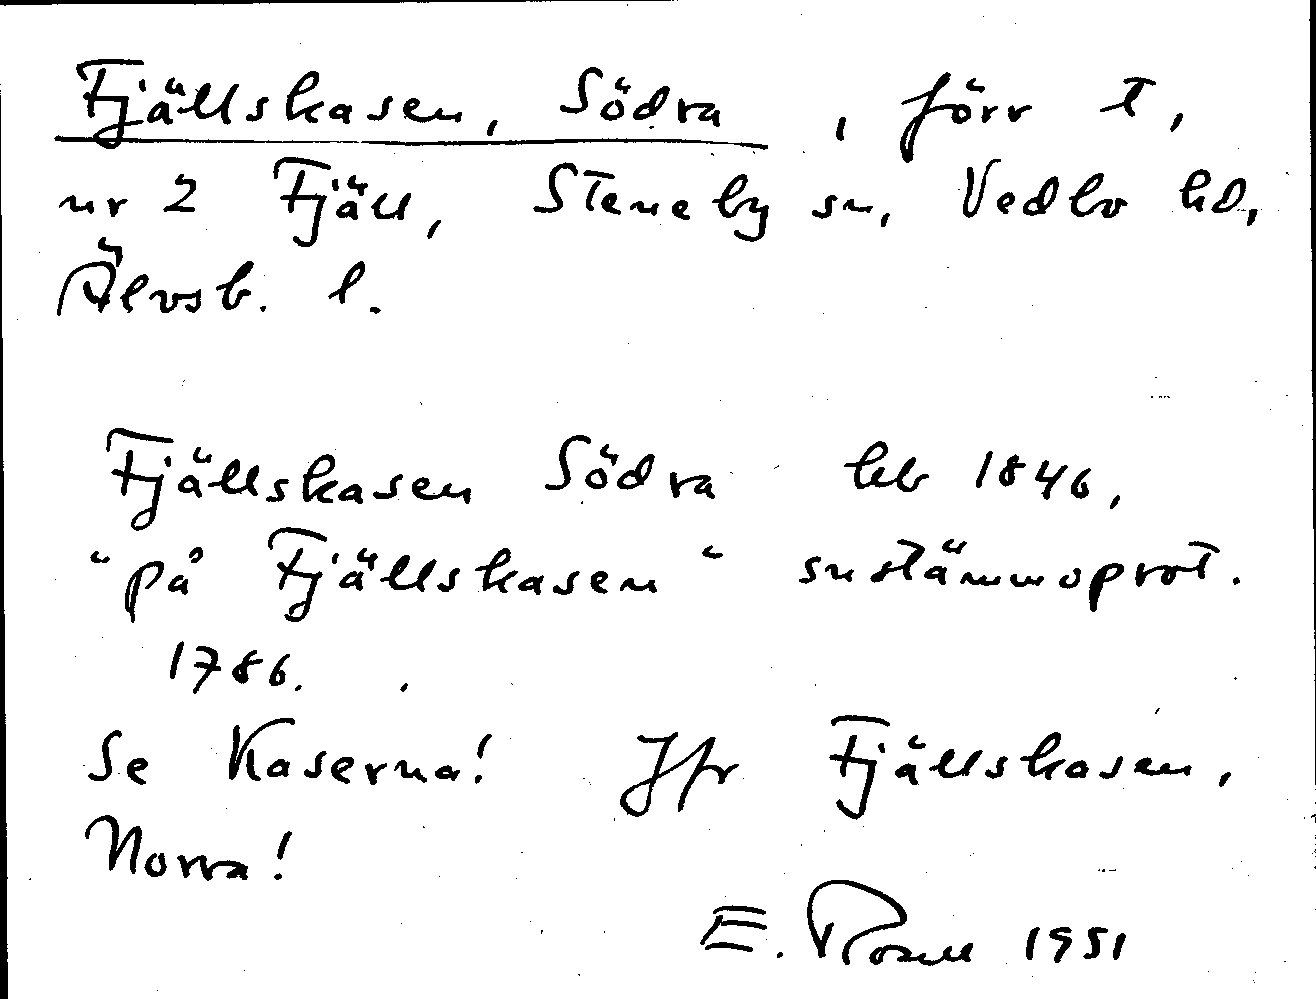 Fjällskasen, Södra, förr t,
nr 2 Fjäll, Steneby sn, Vedbo hd,
Älvsb. l.
Fjällskasen Södra hfb 1846,
"på Fjällskasen" snstämmoprot.
1786.
Se Kaserna! Jfr Fjällskasen,
Norra!
E. Rosell 1951